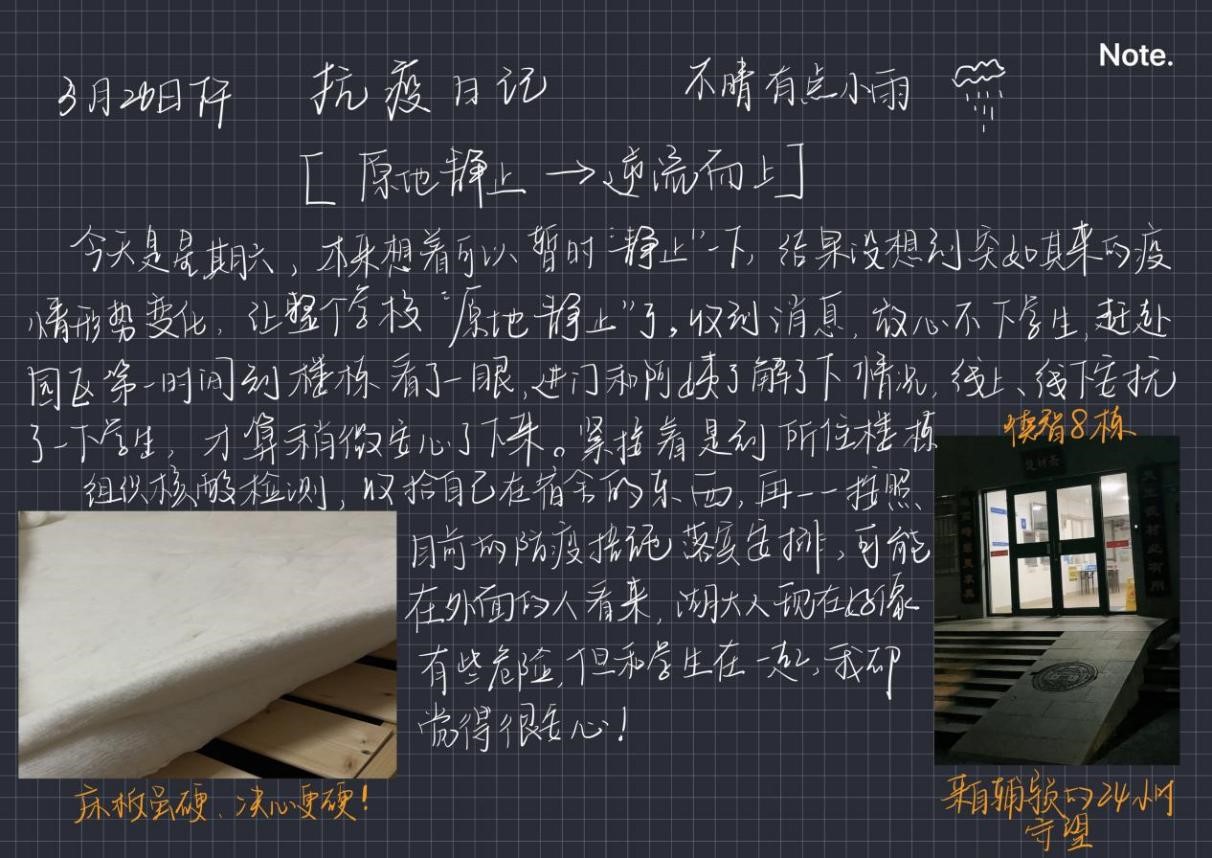 Note.
3月26日 下午 抗疫日记 不晴有点小雨
[原地静止→逆流而上]
今天是星期六，本来想着可以暂时“静止”一下，结果没想到突如其来的疫
情形势变化，让整个学校“原地静止”了。收到消息，放心不下学生，赶赴
园区第一时间到楼栋看了一眼，进门和阿姨了解了下情况，线上、线下安抚
了一下学生，才算稍微安心了下来。紧接着是到所住楼栋
组织核酸检测，收拾自己在宿舍的东西，再一一按照
目前的防疫措施落实安排，可能
在外面的人看来，湖大人现在好像
有些危险，但和学生在一起，我却
觉得很安心！
德智8栋
床板虽硬，决心更硬！
来自辅导员的24小时
守望